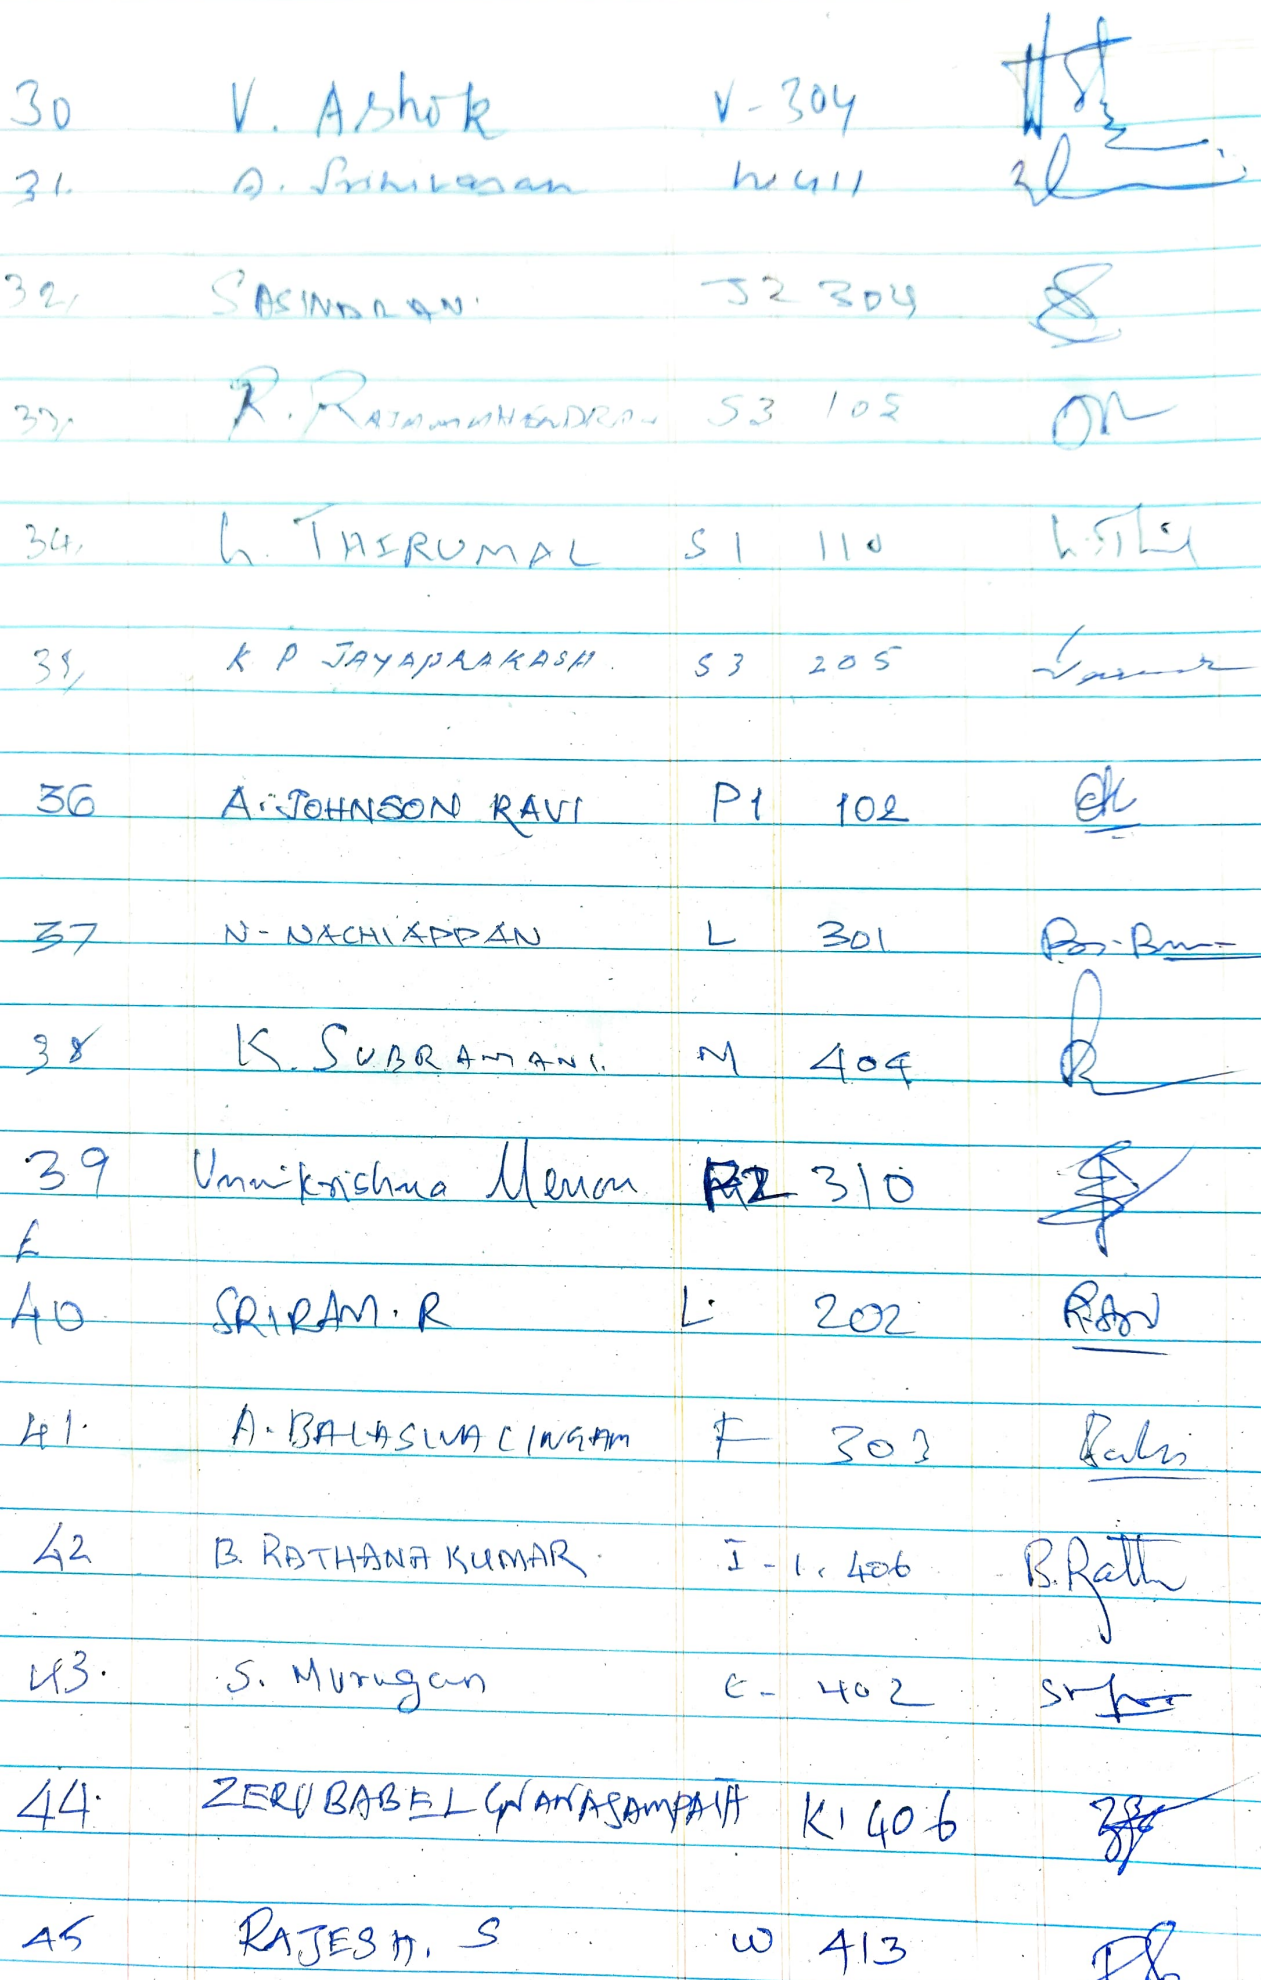 30 V. Ashok V-304
31. A. Srinivasan W 411
32, SASINDRAN. J2 304
33, R. RAJAMAHENDRAN S3 102
34, L. THIRUMAL S1 110
35, K P JAYAPRAKASH. S3 205
36 A. JOHNSON RAVI P1 102
37 N- NACHIAPPAN L 301
38 K. SUBRAMANI. M 404
39 Unnikrishna Menon R2 310
40 SRIRAM. R L. 202
41. A. BALASUBALINGAM F 303
42 B. RATHANA KUMAR. I-1, 406 B.Rath
43. S. Murugan E- 402
44. ZERUBABEL GNANASAMPATH K1 406
45 RAJESH. S W 413